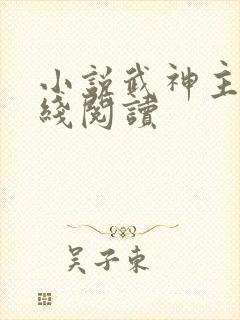 小説武神主
綫閱讀
吴子東